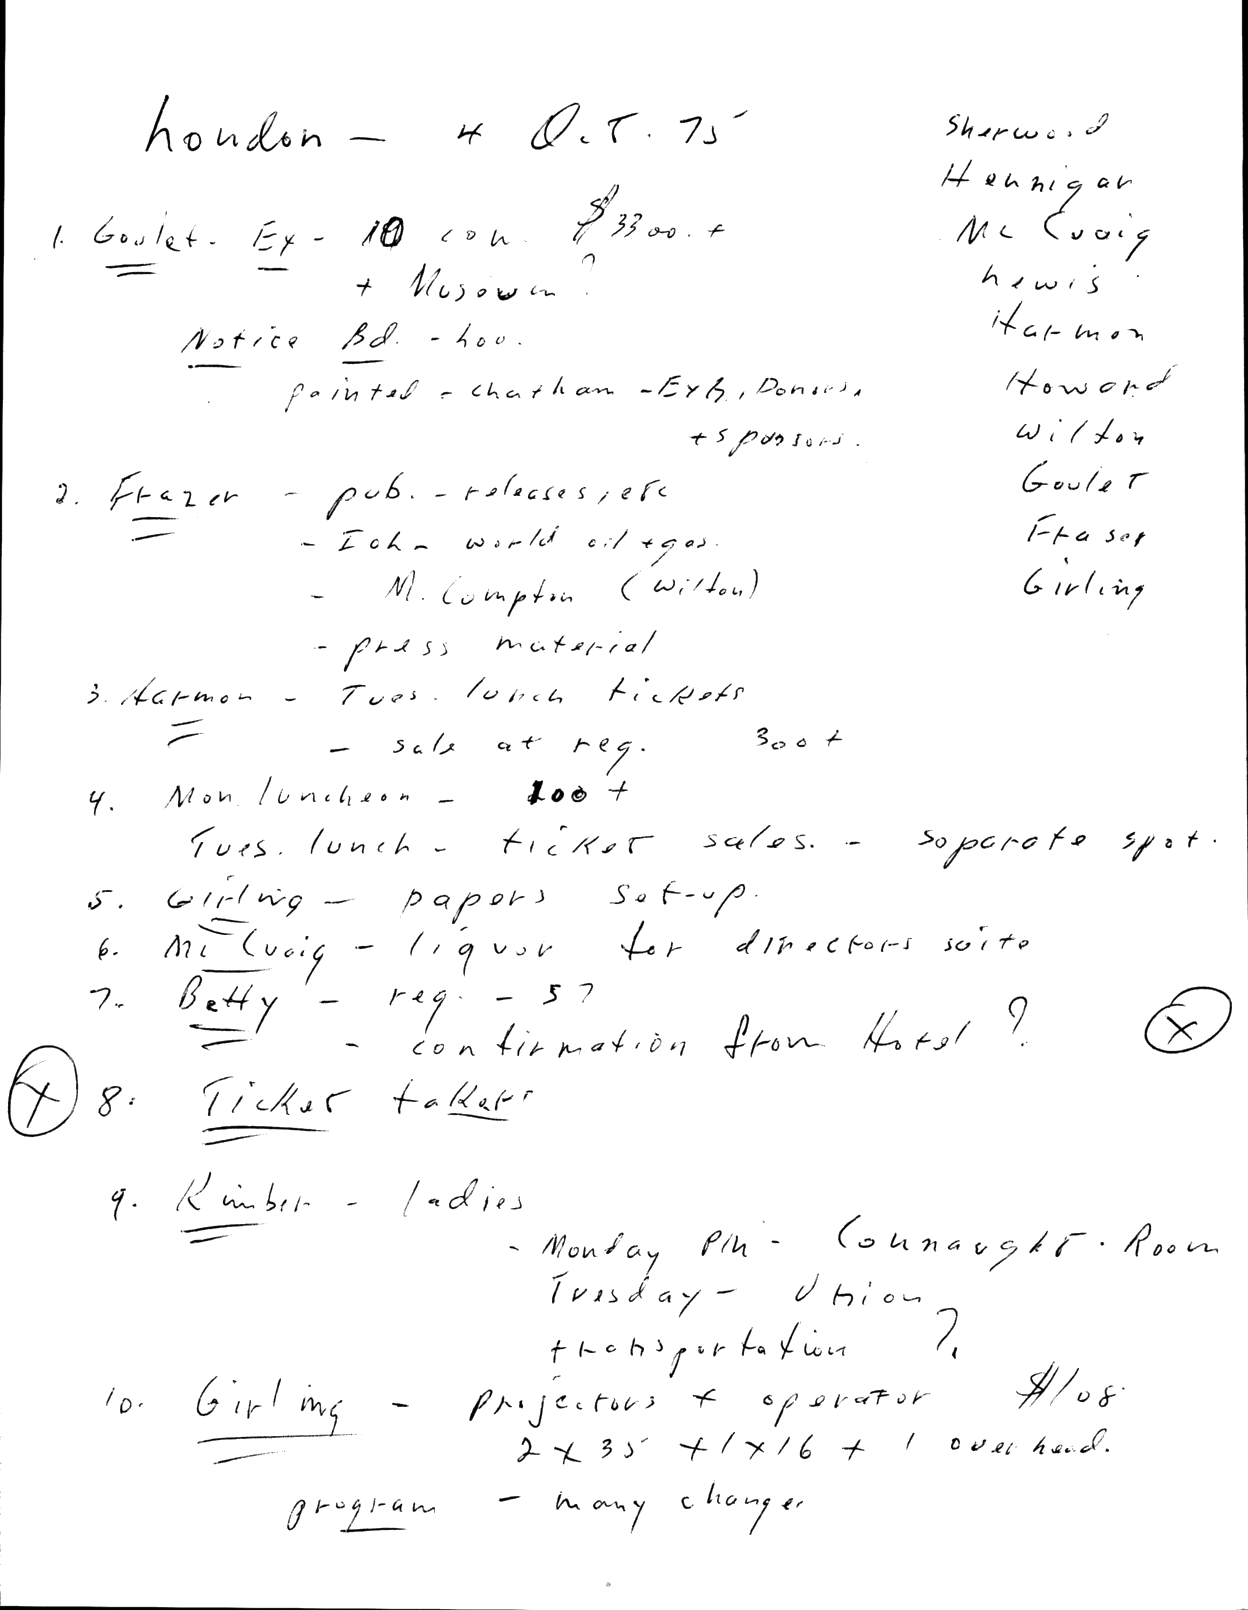 London - 4 Oct. 75
Sherwood
Hennigar
McCuaig
Lewis
Harmon
Howard
Wilton
Goulet
Fraser
Girling
1. Goulet - Ex - 10 con. $3300. +
+ ?
Notice Bd. - Lou.
painted - Chatham - Exh, Donors,
+ sponsors.
2. Frazer - pub. - releases, etc
- world oil + gas.
- M. Compton (Wilton)
- press material
3. Harmon - Tues. lunch tickets
- sale at reg. 300 +
4. Mon. luncheon - 100 +
Tues. lunch - ticket sales. - separate spot.
5. Girling - papers set-up.
6. McCuaig - liquor for directors suite
7. Betty - reg. - 5?
- confirmation from Hotel? X
X 8. Ticket takers
9. Kimber - ladies
- Monday PM - Connaught Room
Tuesday - Union
transportation ?
10. Girling - projectors + operator $108
2 x 35 + 1 x 16 + 1 overhead.
program - many changes